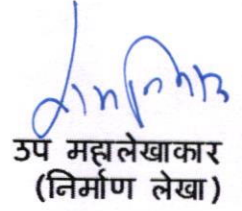 उप महालेखाकार
(निर्माण लेखा)